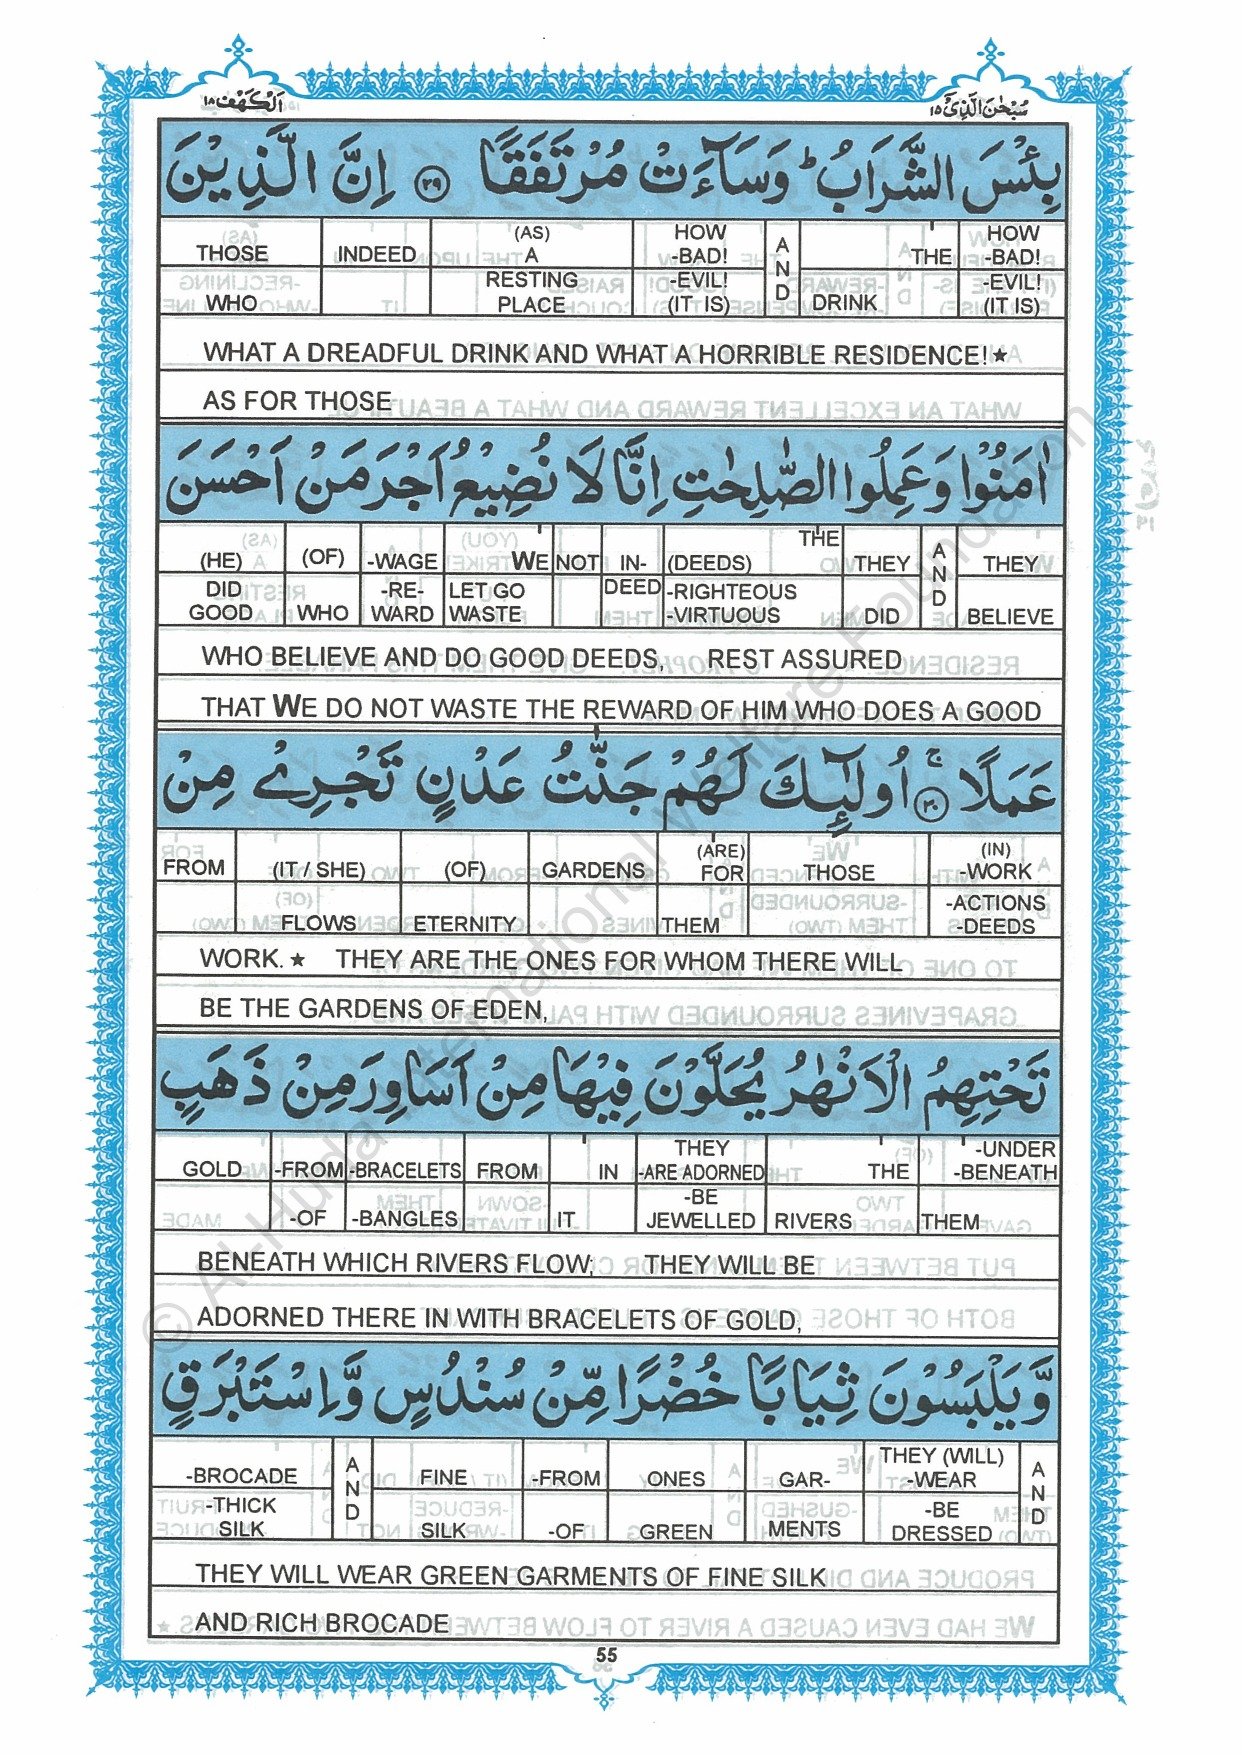 اَلْكَهْف ١٨
سُبْحٰنَ الَّذِيْٓ ١٥
بِئْسَ الشَّرَابُ ؕ وَسَآءَتْ مُرْتَفَقًا ﴿٢٩﴾ اِنَّ الَّذِيْنَ
THOSE INDEED (AS) A HOW -BAD! AND THE HOW -BAD!
WHO RESTING PLACE -EVIL! (IT IS) DRINK -EVIL! (IT IS)
WHAT A DREADFUL DRINK AND WHAT A HORRIBLE RESIDENCE!★
AS FOR THOSE
اٰمَنُوْا وَعَمِلُوا الصّٰلِحٰتِ اِنَّا لَا نُضِيْعُ اَجْرَ مَنْ اَحْسَنَ
(HE) (OF) -WAGE WE NOT IN- (DEEDS) THE THEY AND THEY
DID GOOD WHO -RE-WARD LET GO WASTE DEED -RIGHTEOUS -VIRTUOUS DID BELIEVE
WHO BELIEVE AND DO GOOD DEEDS, REST ASSURED
THAT WE DO NOT WASTE THE REWARD OF HIM WHO DOES A GOOD
عَمَلًا ﴿٣٠﴾ ۚ اُولٰٓئِكَ لَهُمْ جَنّٰتُ عَدْنٍ تَجْرِيْ مِنْ
FROM (IT / SHE) (OF) GARDENS (ARE) FOR THOSE (IN) -WORK
FLOWS ETERNITY THEM -ACTIONS -DEEDS
WORK.★ THEY ARE THE ONES FOR WHOM THERE WILL
BE THE GARDENS OF EDEN,
تَحْتِهِمُ الْاَنْهٰرُ يُحَلَّوْنَ فِيْهَا مِنْ اَسَاوِرَ مِنْ ذَهَبٍ
GOLD -FROM -BRACELETS FROM IN THEY -ARE ADORNED THE -UNDER -BENEATH
-OF -BANGLES IT -BE JEWELLED RIVERS THEM
BENEATH WHICH RIVERS FLOW; THEY WILL BE
ADORNED THERE IN WITH BRACELETS OF GOLD,
وَّيَلْبَسُوْنَ ثِيَابًا خُضْرًا مِّنْ سُنْدُسٍ وَّاِسْتَبْرَقٍ
-BROCADE AND FINE -FROM ONES GAR- THEY (WILL) -WEAR AND
-THICK SILK SILK -OF GREEN MENTS -BE DRESSED
THEY WILL WEAR GREEN GARMENTS OF FINE SILK
AND RICH BROCADE
55
© Al-Huda International Welfare Foundation